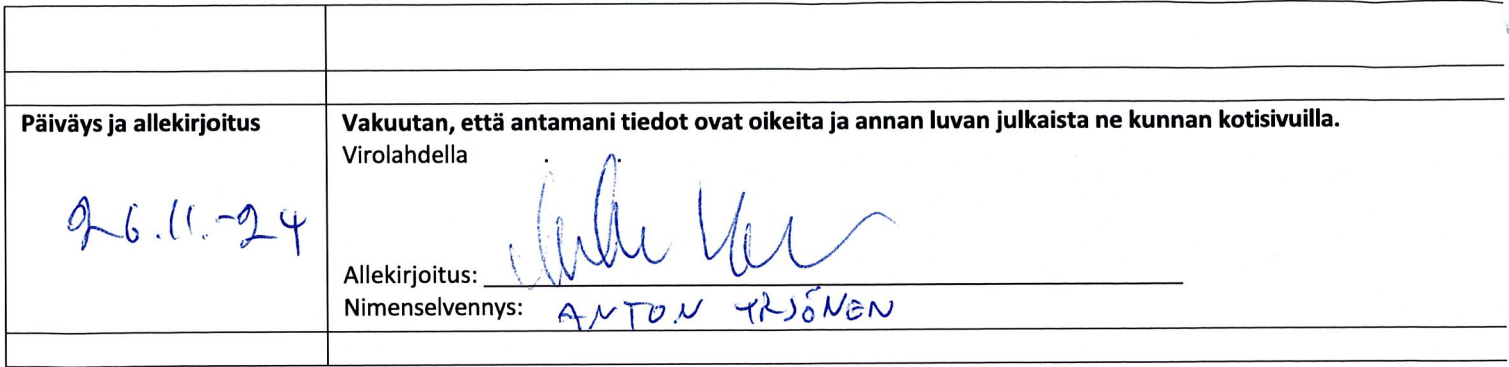 Päiväys ja allekirjoitus
26.11.-24
Vakuutan, että antamani tiedot ovat oikeita ja annan luvan julkaista ne kunnan kotisivuilla.
Virolahdella
Allekirjoitus:
Nimenselvennys: ANTON YRJÖNEN